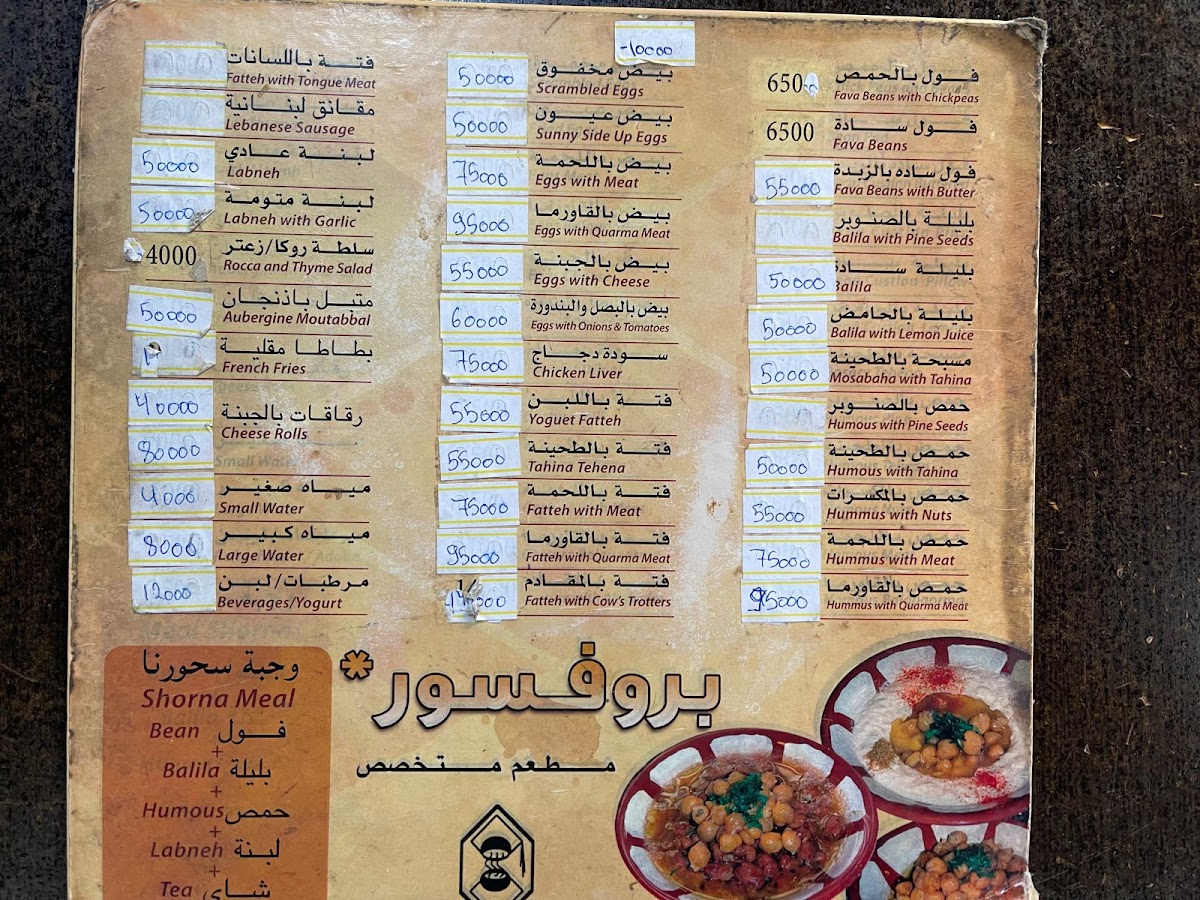 -10000
فتة باللسانات
Fatteh with Tongue Meat
مقانق لبنانية
Lebanese Sausage
50000 لبنة عادي
Labneh
50000 لبنة متومة
Labneh with Garlic
4000 سلطة روكا/زعتر
Rocca and Thyme Salad
50000 متبل باذنجان
Aubergine Moutabbal
بطاطا مقلية
French Fries
40000 رقاقات بالجبنة
Cheese Rolls
80000
Small Water
4000 مياه صغير
Small Water
8000 مياه كبير
Large Water
12000 مرطبات/لبن
Beverages/Yogurt
50000 بيض مخفوق
Scrambled Eggs
50000 بيض عيون
Sunny Side Up Eggs
75000 بيض باللحمة
Eggs with Meat
95000 بيض بالقاورما
Eggs with Quarma Meat
55000 بيض بالجبنة
Eggs with Cheese
60000 بيض بالبصل والبندورة
Eggs with Onions & Tomatoes
75000 سودة دجاج
Chicken Liver
55000 فتة باللبن
Yoguet Fatteh
55000 فتة بالطحينة
Tahina Tehena
75000 فتة باللحمة
Fatteh with Meat
95000 فتة بالقاورما
Fatteh with Quarma Meat
فتة بالمقادم
Fatteh with Cow's Trotters
650 فول بالحمص
Fava Beans with Chickpeas
6500 فول سادة
Fava Beans
55000 فول ساده بالزبدة
Fava Beans with Butter
بليلة بالصنوبر
Balila with Pine Seeds
50000 بليلة سادة
Balila
50000 بليلة بالحامض
Balila with Lemon Juice
50000 مسبحة بالطحينة
Mosabaha with Tahina
حمص بالصنوبر
Humous with Pine Seeds
50000 حمص بالطحينة
Humous with Tahina
55000 حمص بالمكسرات
Hummus with Nuts
75000 حمص باللحمة
Hummus with Meat
95000 حمص بالقاورما
Hummus with Quarma Meat
وجبة سحورنا
Shorna Meal
Bean فول
+
Balila بليلة
+
Humous حمص
+
Labneh لبنة
+
Tea شاي
بروفسور*
مطعم متخصص